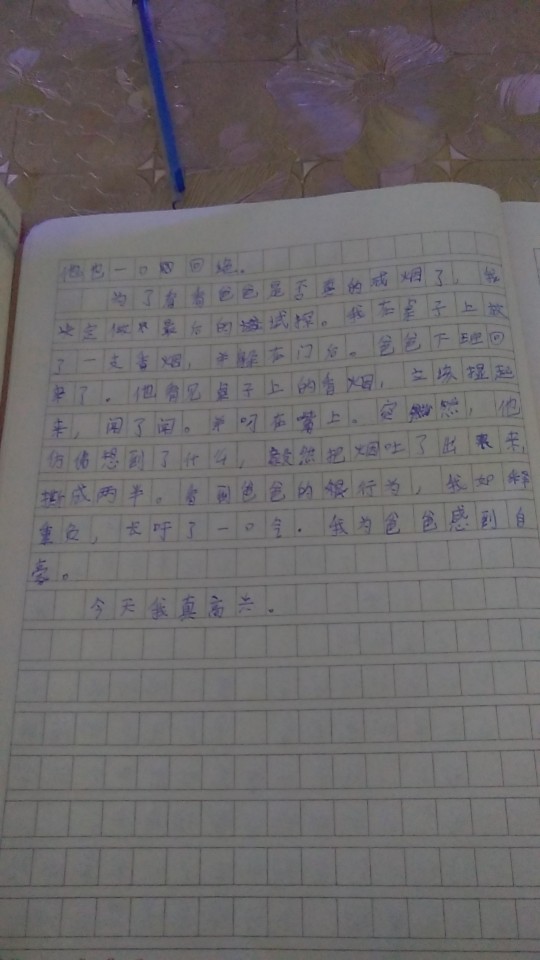 他也一口回绝。
为了看看爸爸是否真的戒烟了，我
决定做个最后的测试探。我在桌子上放
了一支香烟，并躲在门后。爸爸下班回
来了。他看见桌子上的香烟，立该提起
来，闻了闻。并叼在嘴上。突然，他
仿佛想到了什么，毅然把烟吐了出来，
撕成两半。看到爸爸的行为，我如释
重负，长吁了一口气。我为爸爸感到自
豪。
今天我真高兴。